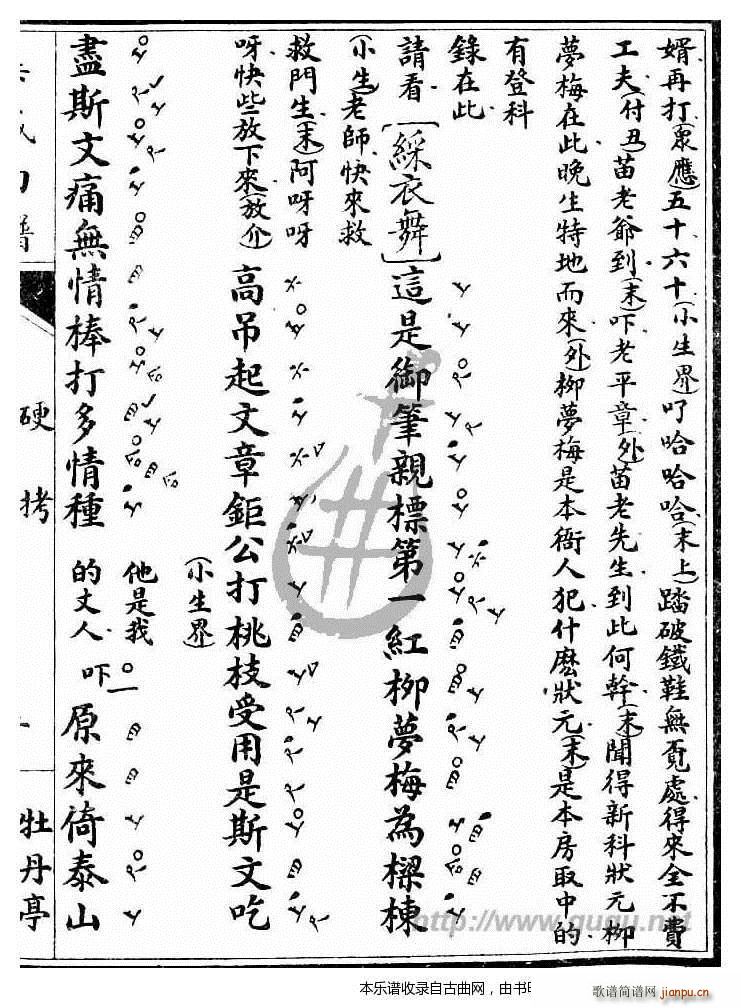 婿再打(衆應)五十六十(小生界)吖哈哈哈(末上)踏破鐵鞋無覓處得來全不費
工夫(付丑)苗老爺到(末)吓老平章(外)苗老先生到此何幹(末)聞得新科狀元柳
夢梅在此晚生特地而來(外)柳夢梅是本衙人犯什麽狀元(末)是本房取中的
有登科
錄在此
請看[綵衣舞]這是御筆親標第一紅柳夢梅為樑棟
(小生)老師快來救
救門生(末)阿呀呀
呀快些放下來(放介)高吊起文章鉅公打桃枝受用是斯文吃
(小生界)
盡斯文痛無情棒打多情種
他是我
的丈人吓原來倚泰山
硬拷
牡丹亭
http://www.ququ.net
本乐谱收录自古曲网，由书
歌谱简谱网
jianpu.cn